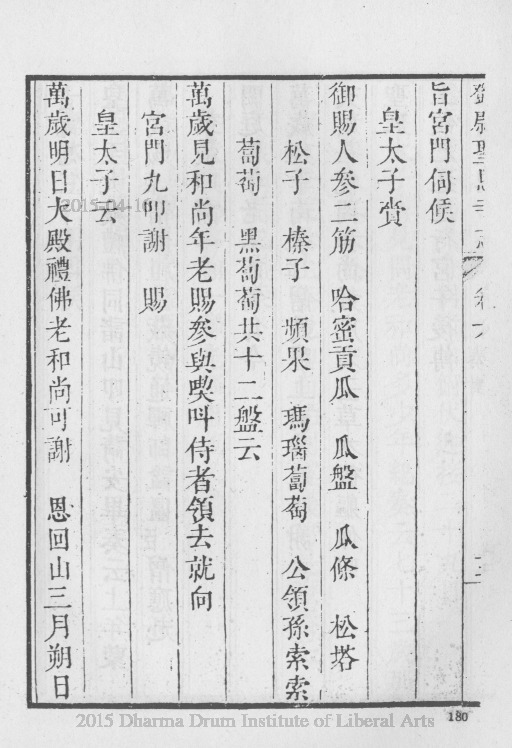 旨宮門伺候
皇太子賚
御賜人參二筋 哈密貢瓜 瓜盤 瓜條 松塔
松子 榛子 頻果 瑪瑙蔔萄 公領孫索索
蔔萄 黑蔔萄共十二盤云
萬歲見和尚年老賜參與喫呌侍者領去就向
宮門九叩謝 賜
皇太子云
萬歲明日大殿禮佛老和尚可謝 恩回山三月朔日
180
2015-04-16
2015 Dharma Drum Institute of Liberal Arts